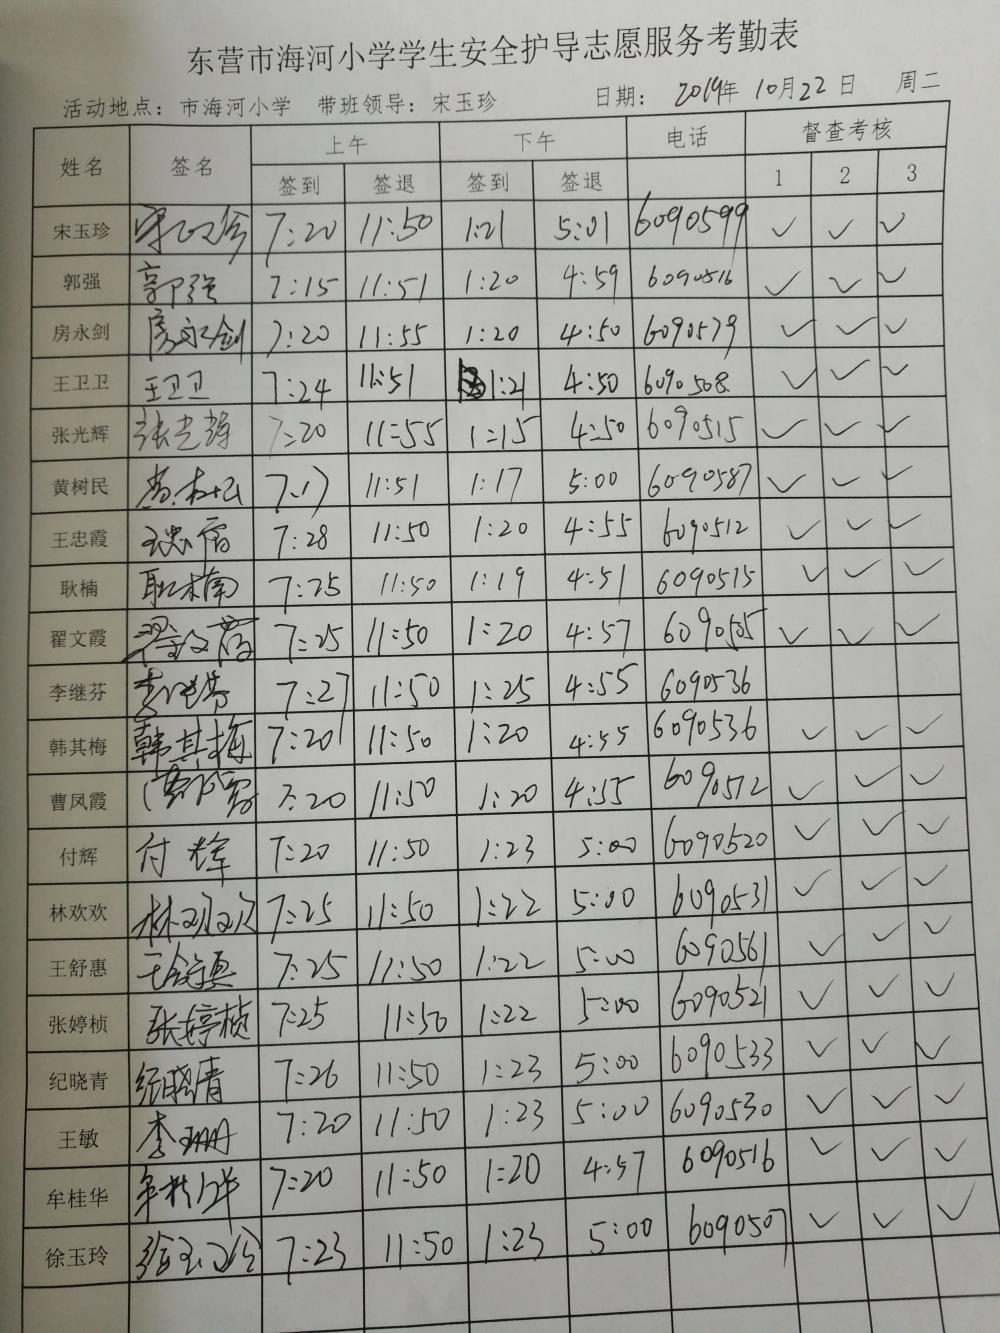 东营市海河小学学生安全护导志愿服务考勤表
活动地点：市海河小学 带班领导：宋玉珍 日期： 2019年 10月22日 周二
姓名 签名 上午 下午 电话 督查考核
签到 签退 签到 签退 1 2 3
宋玉珍 宋玉珍 7:20 11:50 1:21 5:01 6090599 ✓ ✓ ✓
郭强 郭强 7:15 11:51 1:20 4:59 6090516 ✓ ✓ ✓
房永剑 房永剑 7:20 11:55 1:20 4:50 6090579 ✓ ✓ ✓
王卫卫 王卫卫 7:24 11:51 1:21 4:50 6090508 ✓ ✓ ✓
张光辉 张光辉 7:20 11:55 1:15 4:50 6090515 ✓ ✓ ✓
黄树民 7:17 11:51 1:17 5:00 6090587 ✓ ✓ ✓
王忠霞 王忠霞 7:28 11:50 1:20 4:55 6090512 ✓ ✓ ✓
耿楠 耿楠 7:25 11:50 1:19 4:51 6090515 ✓ ✓ ✓
翟文霞 翟文霞 7:25 11:50 1:20 4:57 6090505 ✓ ✓ ✓
李继芬 李继芬 7:27 11:50 1:25 4:55 6090536
韩其梅 韩其梅 7:20 11:50 1:20 4:55 6090536 ✓ ✓ ✓
曹凤霞 曹凤霞 7:20 11:50 1:20 4:55 6090512 ✓ ✓ ✓
付辉 付辉 7:20 11:50 1:23 5:00 6090520 ✓ ✓ ✓
林欢欢 林欢欢 7:25 11:50 1:22 5:00 6090531 ✓ ✓ ✓
王舒惠 王舒惠 7:25 11:50 1:22 5:00 6090561 ✓ ✓ ✓
张婷桢 张婷桢 7:25 11:50 1:22 5:00 6090521 ✓ ✓ ✓
纪晓青 纪晓青 7:26 11:50 1:23 5:00 6090533 ✓ ✓ ✓
王敏 李珊 7:20 11:50 1:23 5:00 6090530 ✓ ✓ ✓
牟桂华 牟桂华 7:20 11:50 1:20 4:57 6090516 ✓ ✓ ✓
徐玉玲 徐玉玲 7:23 11:50 1:23 5:00 6090507 ✓ ✓ ✓